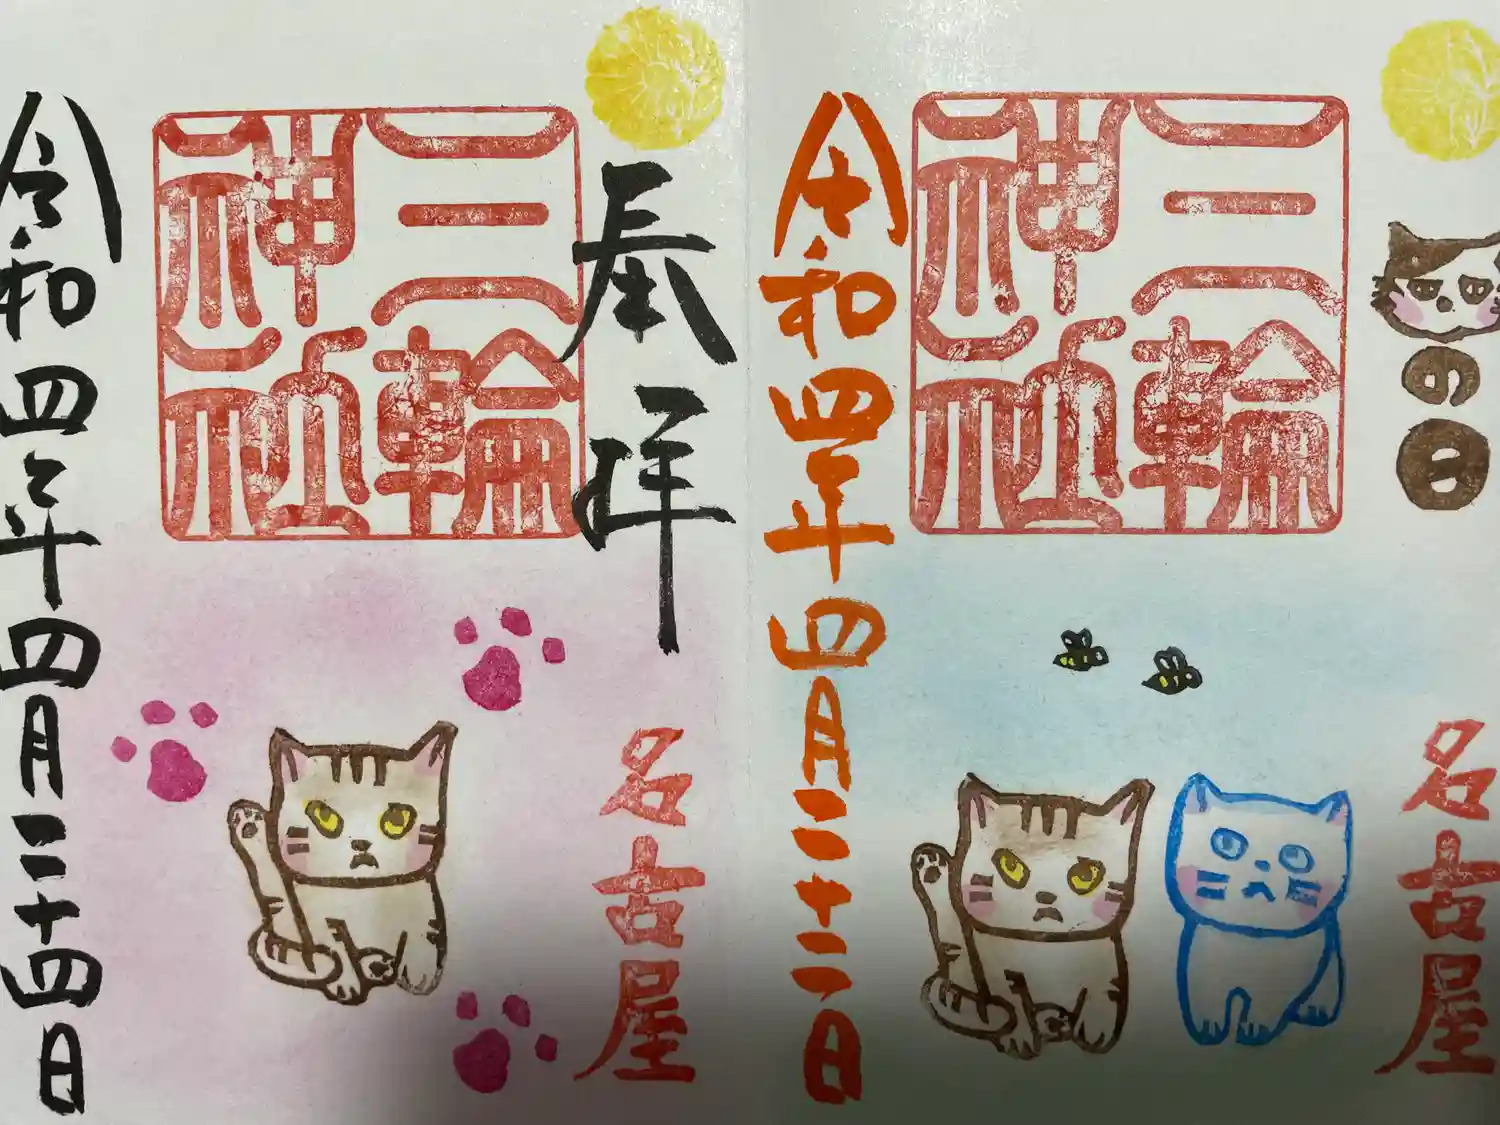 の日
三輪
神社
令和四年四月二十二日
名古屋
奉拝
三輪
神社
令和四年四月二十四日
名古屋